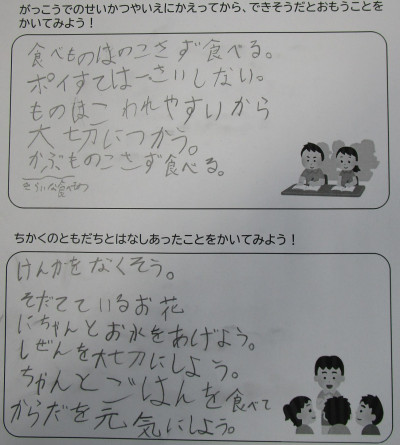 がっこうでのせいかつやいえにかえってから、できそうだとおもうことを
かいてみよう！
食べものはのこさず食べる。
ポイすては一さいしない。
ものはこわれやすいから
大切につかう。
かぶものこさず食べる。
きらいな食べもの
ちかくのともだちとはなしあったことをかいてみよう！
けんかをなくそう。
そだてているお花
にちゃんとお水をあげよう。
しぜんを大切にしよう。
ちゃんとごはんを食べて
からだを元気にしよう。